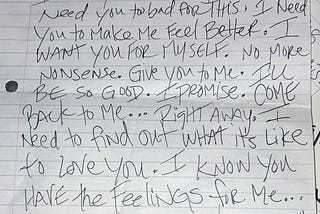 Need you to bad for this. I Need
You to Make Me Feel Better. I
WANT YOU FOR MYSELF. NO MORE
NONSENSE. GIVE YOU TO ME. I'LL
BE SO GOOD. I PROMISE. COME
BACK TO ME... RIGHT AWAY. I
Need to find out WHAT it's Like
to LOVE YOU. I KNOW YOU
HAVE the Feelings for Me...